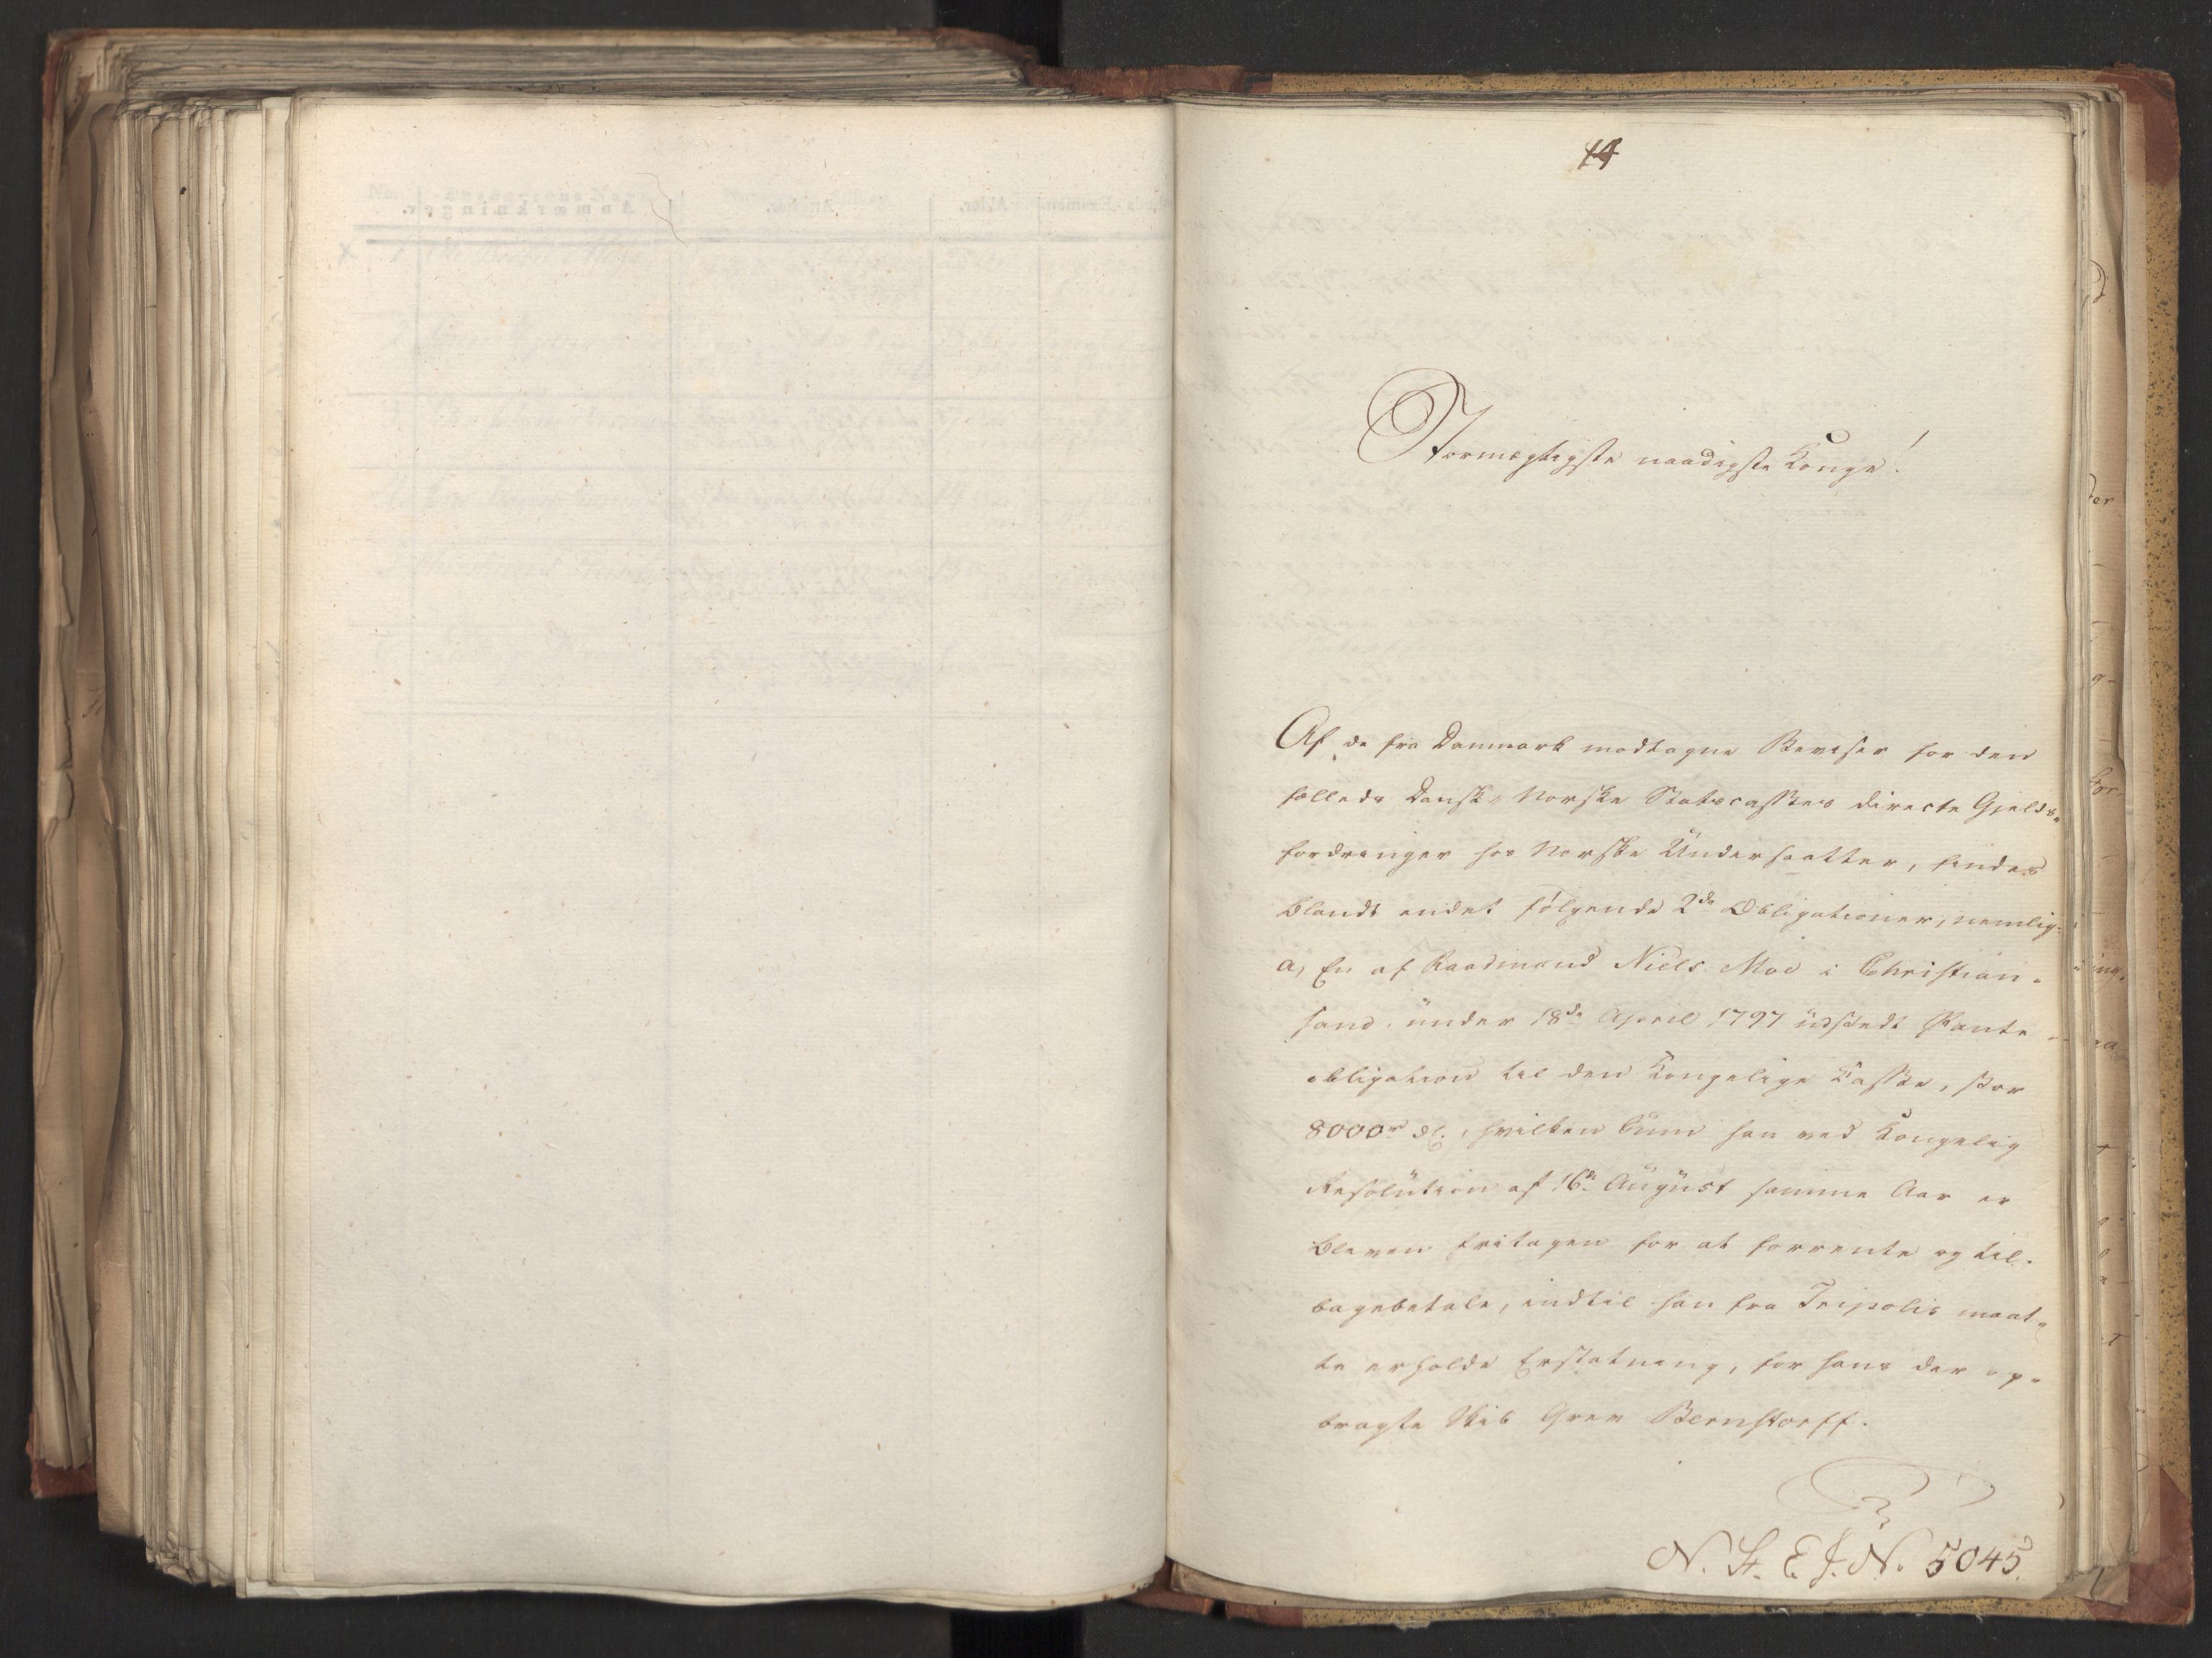 14
Stormægtigste naadigste Konge!
Af de fra Danmark modtagne Beviser for den
fælleds Dansk-Norske Statscasses directe Gjelds-
fordringer hos Norske Undersaatter, findes
blandt andet følgende 2de Obligationer, nemlig:
a, En af Raadmand Niels Moe i Christian-
sand, under 18de April 1797 udstedt Pante-
obligation til den Kongelige Kasse, stor
8000 rdl., hvilken Sum han ved Kongelig
Resolution af 16de August samme Aar er
bleven fritagen for at forrente og til-
bagebetale, indtil han fra Tripolis maat-
te erholde Erstatning, for hans der op-
bragte Skib Grev Bernstorff.
N. St. E. J. N. 5045.